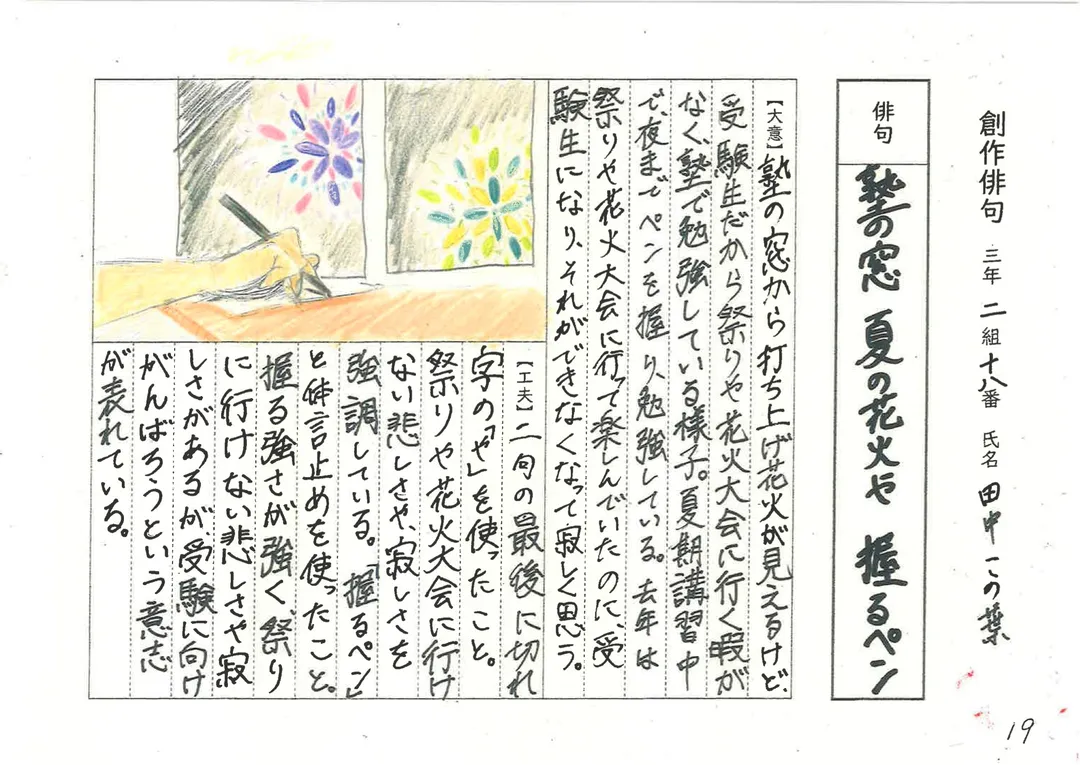 創作俳句 三年 二組 十八番 氏名 田中 この葉
俳句
塾の窓 夏の花火や 握るペン
【大意】塾の窓から打ち上げ花火が見えるけど、
受験生だから祭りや花火大会に行く暇が
なく、塾で勉強している様子。夏期講習中
で、夜までペンを握り、勉強している。去年は
祭りや花火大会に行って楽しんでいたのに、受
験生になり、それができなくなって寂しく思う。
【工夫】二句の最後に切れ
字の「や」を使ったこと。
祭りや花火大会に行け
ない悲しさや、寂しさを
強調している。「握るペン」
と体言止めを使ったこと。
握る強さが強く、祭り
に行けない悲しさや寂
しさがあるが受験に向け
がんばろうという意志
が表れている。
19